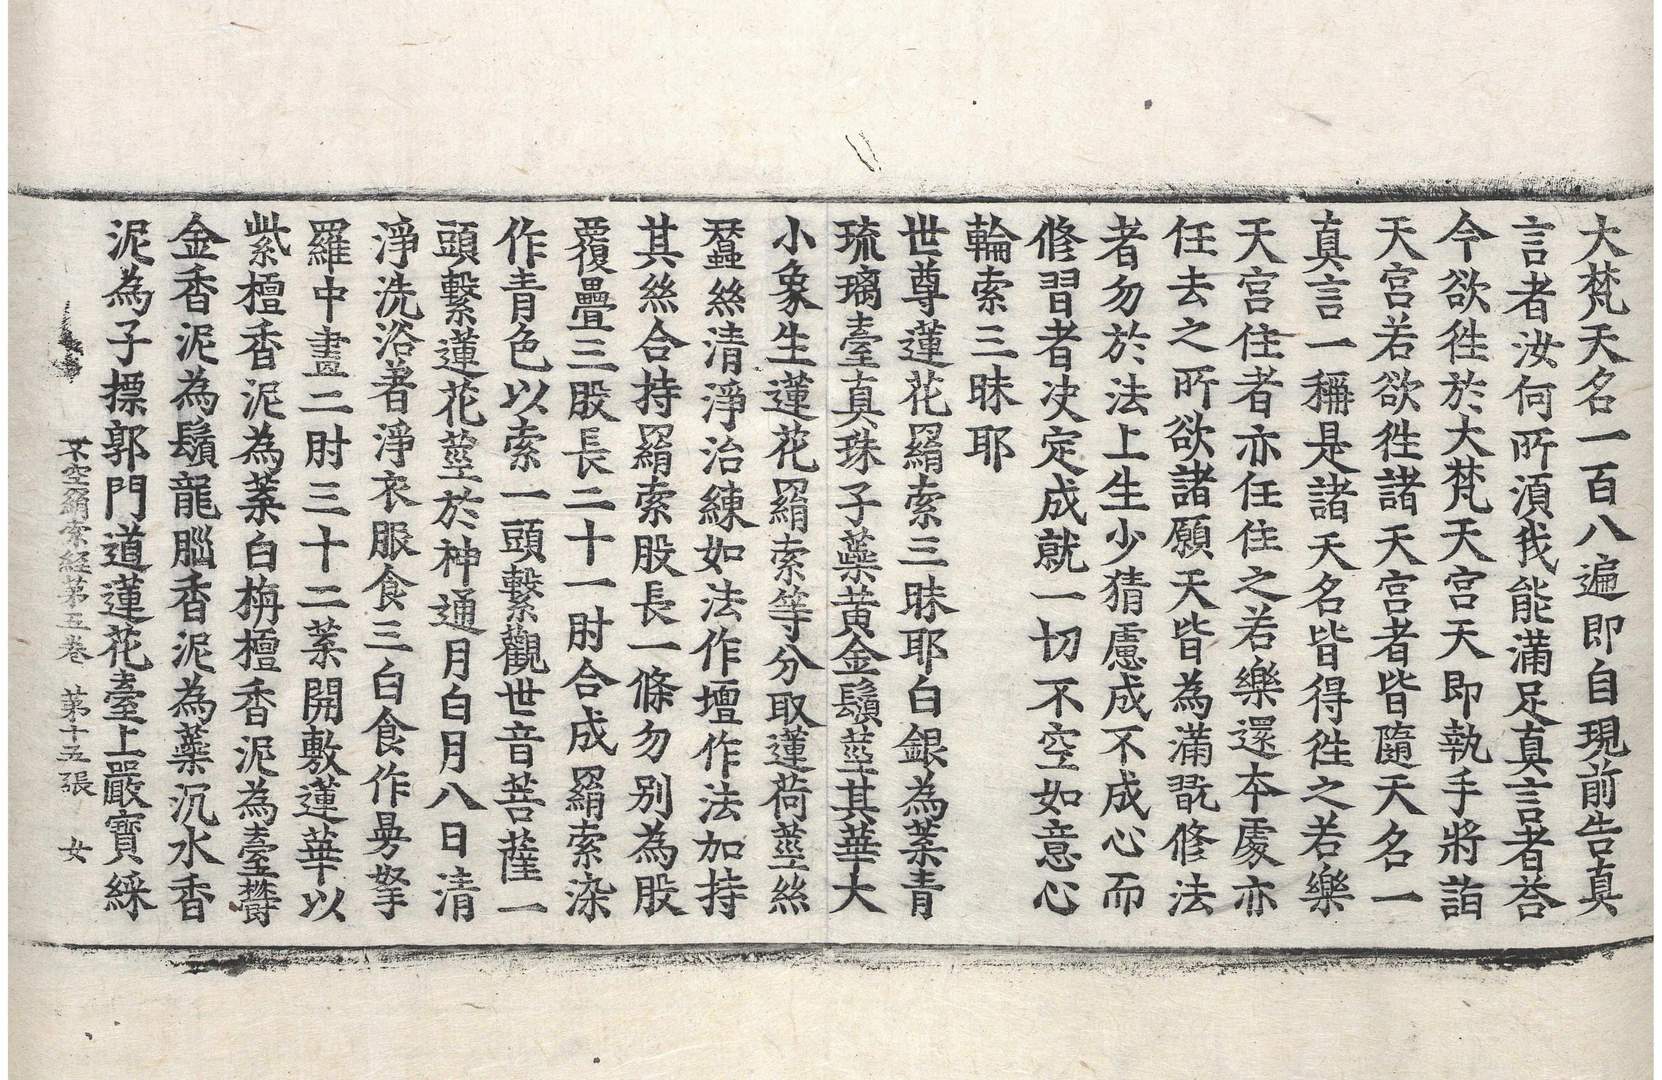 大梵天名一百八遍即自現前告真
言者汝何所湏我能滿足真言者荅
今欲徃於大梵天宮天即執手將詣
天宮若欲徃諸天宮者皆隨天名一
真言一稱是諸天名皆得徃之若樂
天宮住者亦任住之若樂還本處亦
任去之所欲諸願天皆為滿翫修法
者勿於法上生少猜慮成不成心而
修習者決定成就一切不空如意心
輪索三昧耶
世尊蓮花羂索三昧耶白銀為葉青
琉璃臺真珠子蘂黃金鬚莖其華大
小象生蓮花羂索等分取蓮荷莖絲
蠶絲清淨治練如法作壇作法加持
其絲合持羂索股長一條勿別為股
覆疊三股長二十一肘合成羂索染
作青色以索一頭繫觀世音菩薩一
頭繫蓮花莖於神通月白月八日清
淨洗浴著淨衣服食三白食作曼拏
羅中畫二肘三十二葉開敷蓮華以
紫檀香泥為葉白栴檀香泥為臺欝
金香泥為鬚龍腦香泥為蘂沉水香
泥為子摽郭門道蓮花臺上嚴寶綵
不空羂索経第五卷 第十五張 女